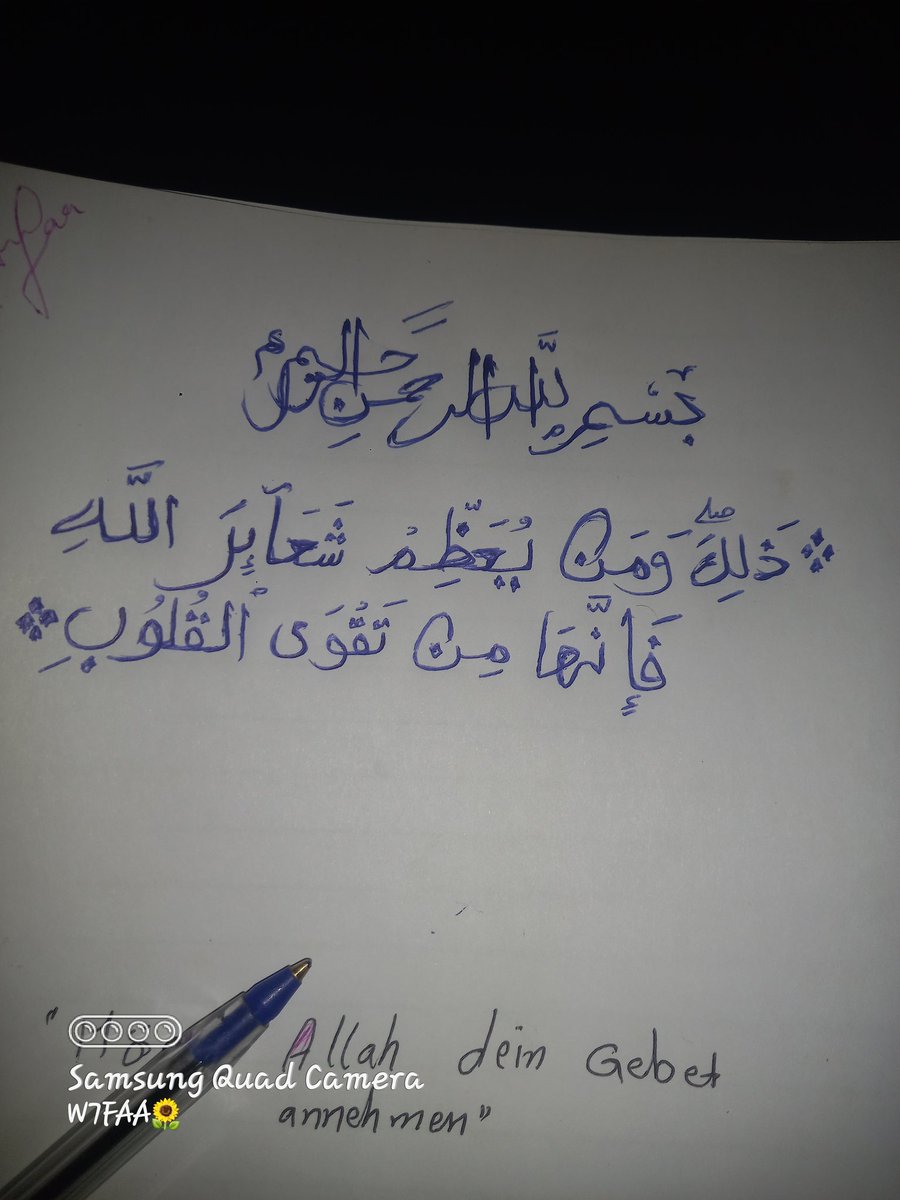 بِسْمِ اللَّهِ الرَّحْمَنِ الرَّحِيمِ
ذَٰلِكَۖ وَمَن يُعَظِّمْ شَعَآئِرَ اللَّهِ
فَإِنَّهَا مِن تَقْوَى ٱلْقُلُوبِ
Allah dein Gebet
annehmen"
Samsung Quad Camera
W7FAA🌻